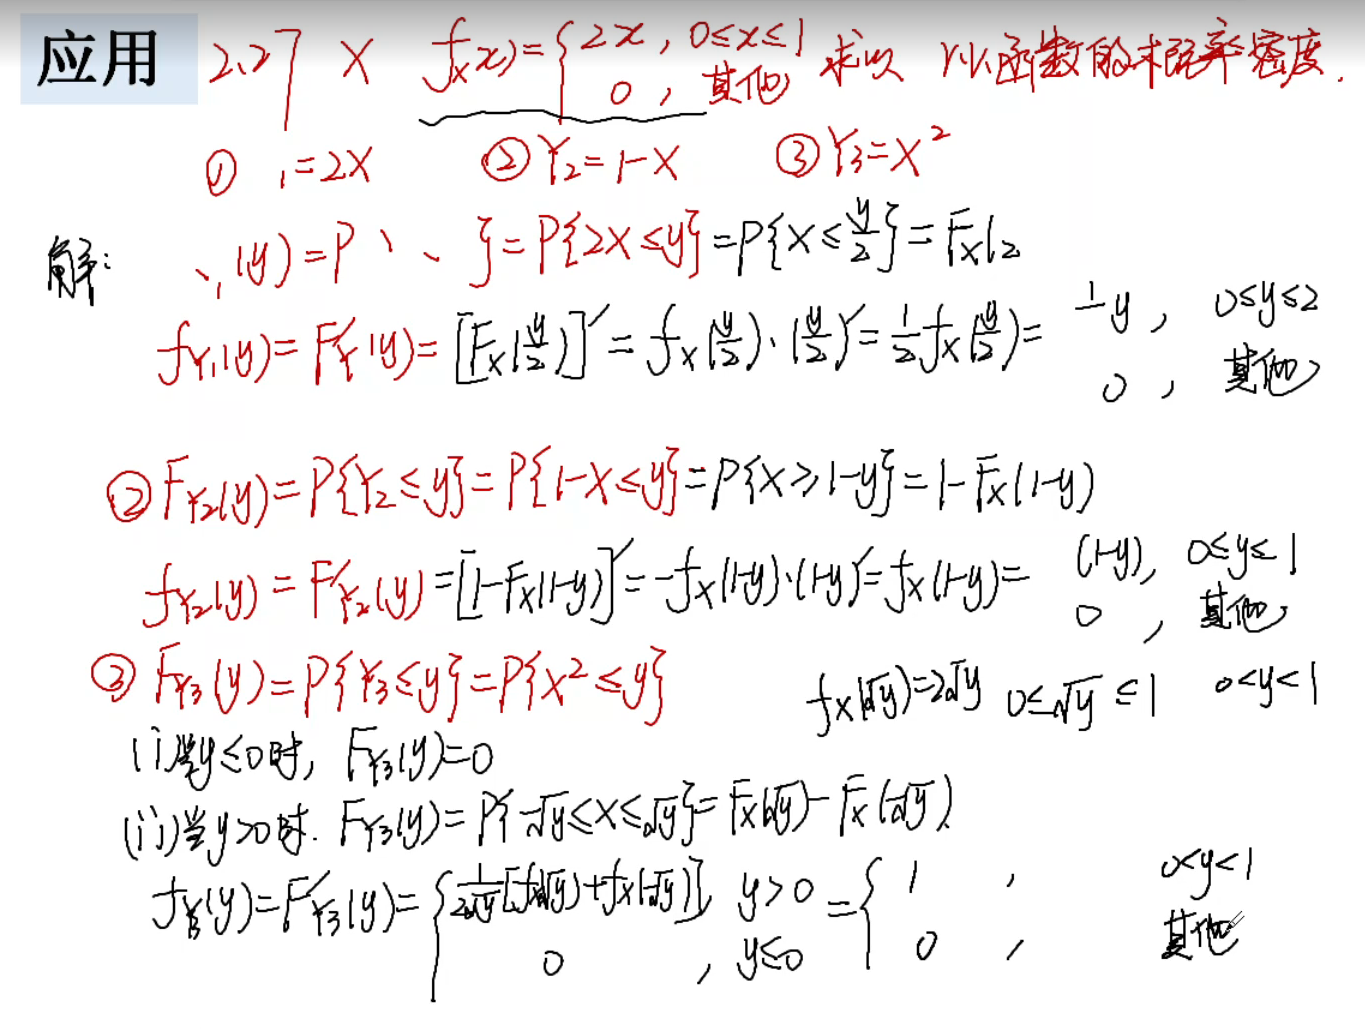 应用 2.27 X f_X(x)={2x, 0≤x≤1
0, 其他 求以 函数的 概率密度.
① ₁=2X ② Y₂=1-X ③ Y₃=X²
解: ₁(y)=P }=P{2X≤y}=P{X≤y/2}=F_X(2
f_Y₁(y)=F'_Y(y)=[F_X(y/2)]'=f_X(y/2)·(y/2)'=1/2 f_X(y/2)= 1/ y, 0≤y≤2
0, 其他
② F_Y₂(y)=P{Y₂≤y}=P{1-X≤y}=P{X≥1-y}=1-F_X(1-y)
f_Y₂(y)=F'_Y₂(y)=[1-F_X(1-y)]'=-f_X(1-y)·(1-y)'=f_X(1-y)= (1-y), 0≤y≤1
0, 其他
③ F_Y₃(y)=P{Y₃≤y}=P{X²≤y} f_X(√y)=2√y 0≤√y≤1 0<y<1
(i)当y≤0时, F_Y₃(y)=0
(ii)当y>0时. F_Y₃(y)=P{-√y≤X≤√y}=F_X(√y)-F_X(-√y)
f_Y₃(y)=F'_Y₃(y)={1/2√y[f_X(√y)+f_X(-√y)], y>0 ={1, 0<y<1
0, y≤0 0, 其他